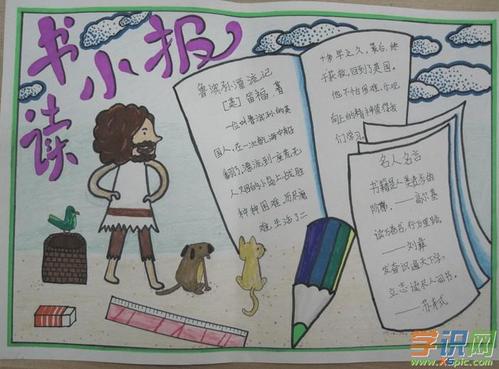 读书小报
鲁滨孙漂流记
[英] 笛福 著
一位叫鲁滨孙的英
国人,在一次航海中船
翻了,漂流到一座荒无
人烟的小岛上,战胜
种种困难,历尽磨
难,生活了二
十多年之久,最后,终
于获救,回到了英国。
他不怕困难,
向上的精神值得我
们学习。
名人名言
书籍是人类进步的
阶梯。——高尔基
读万卷书,行万里路
——刘彝
发奋识遍天下字,
立志读尽人间书。
学识网